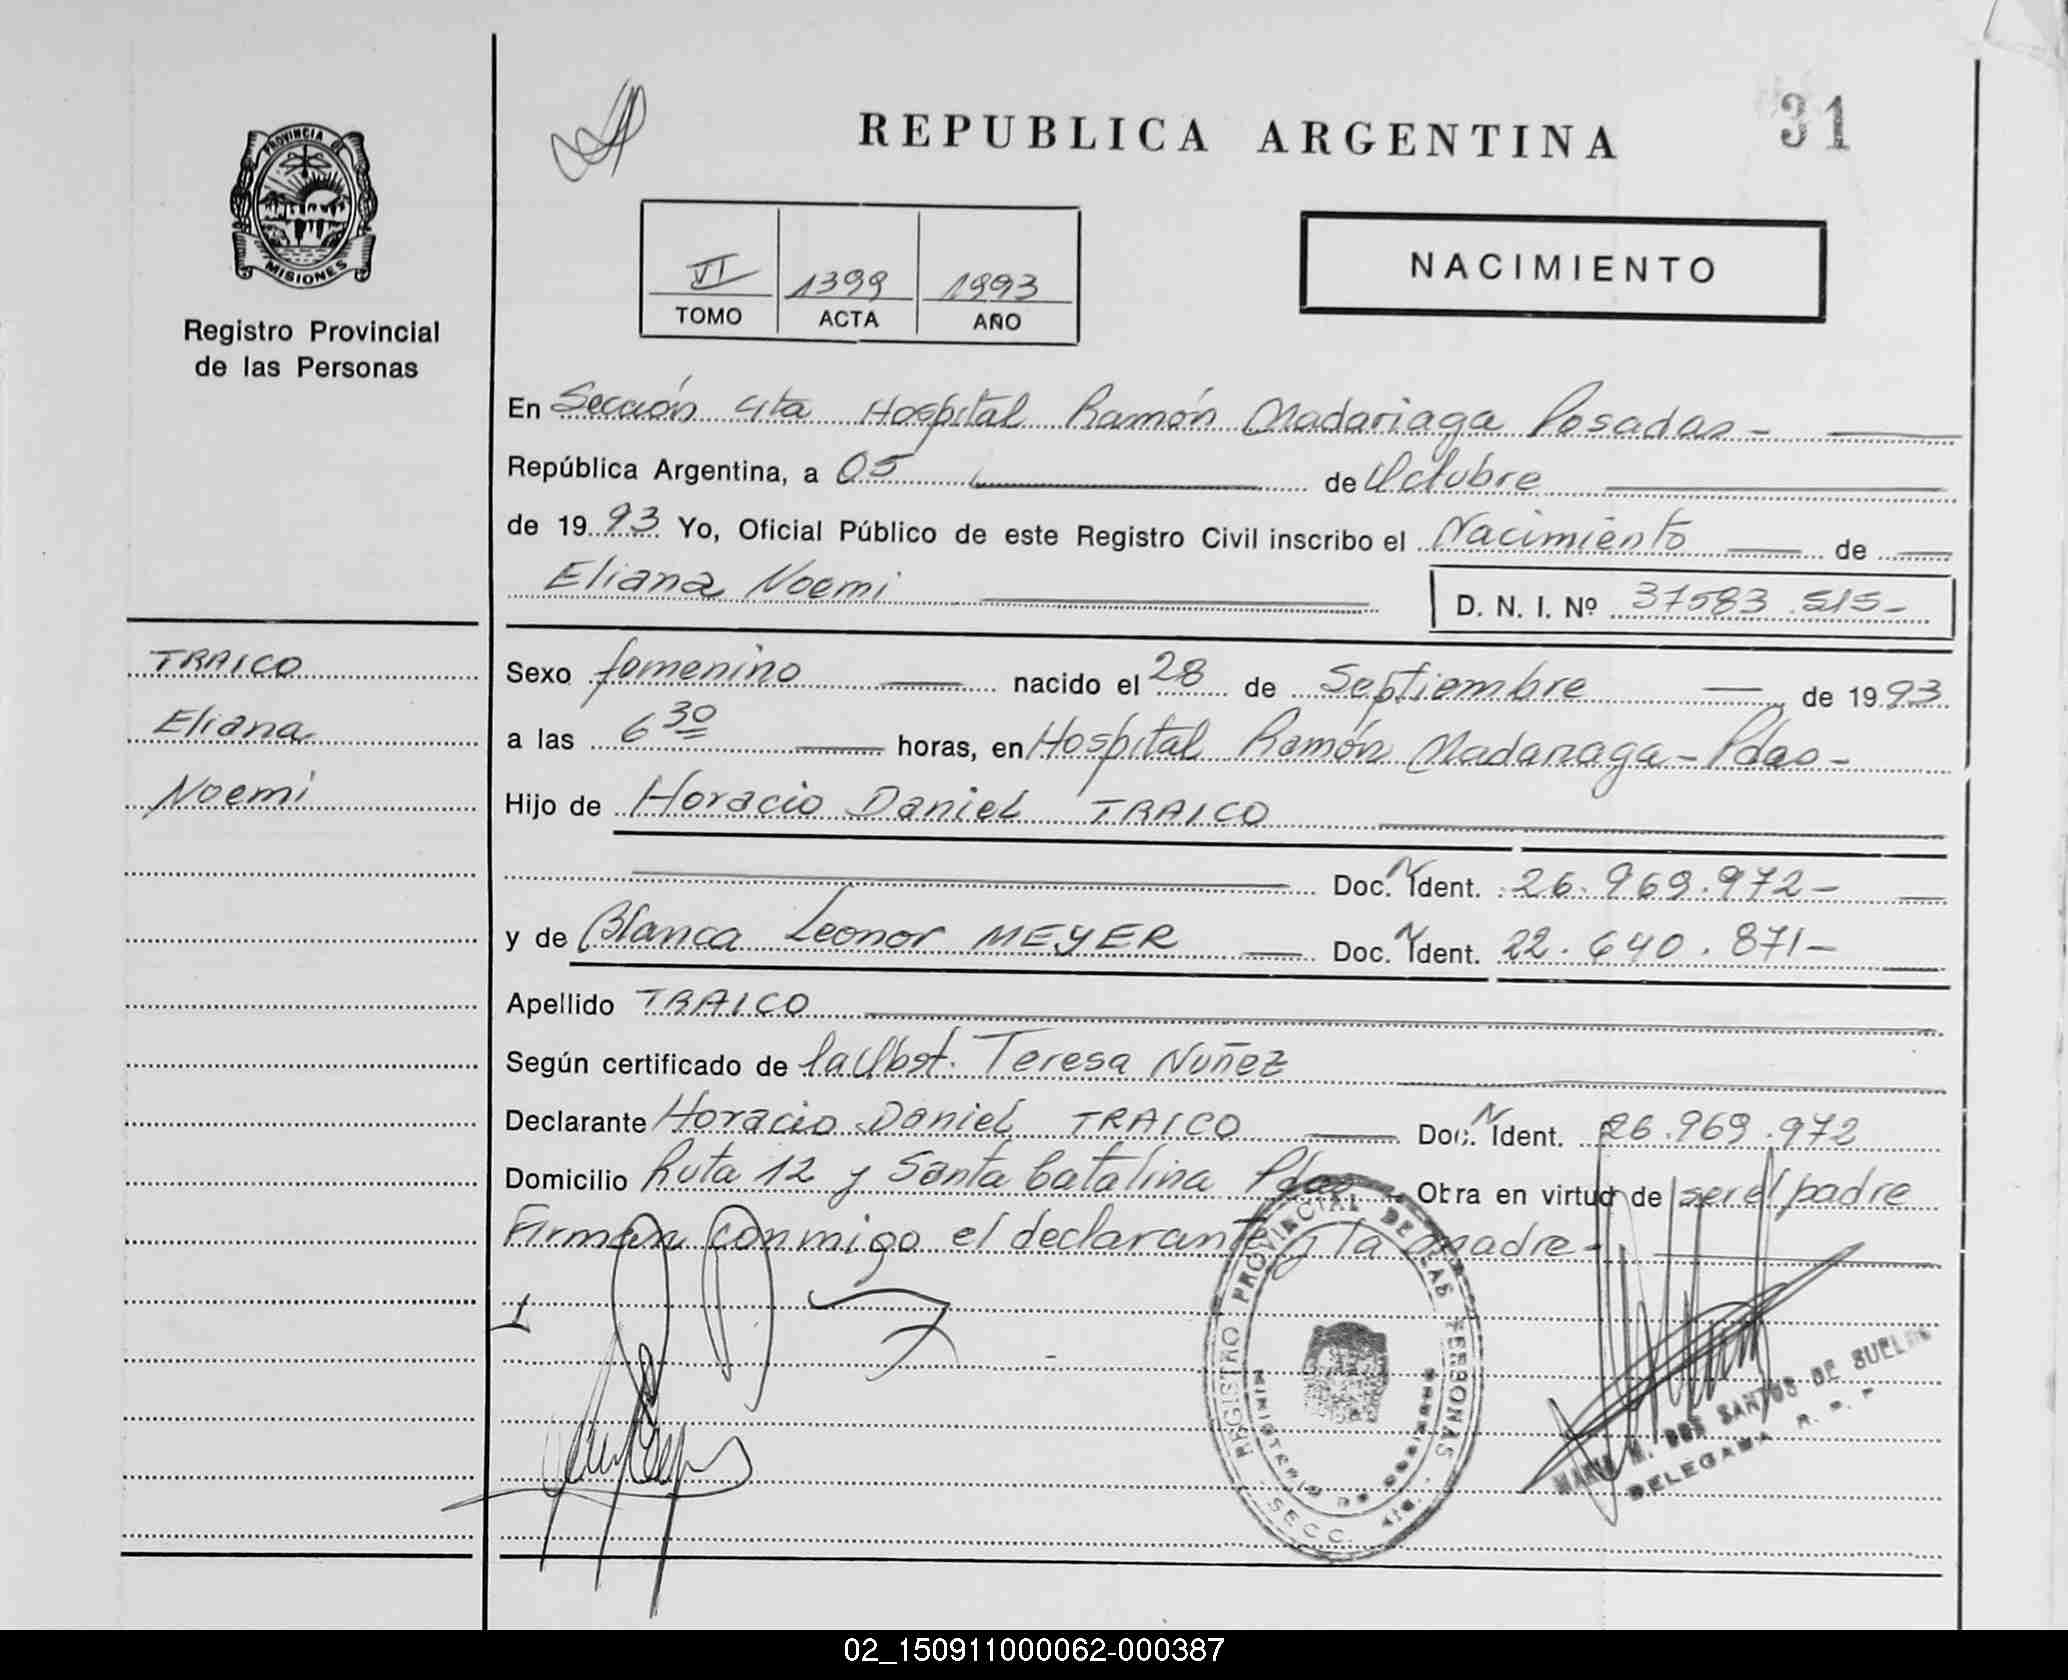 PROVINCIA DE
MISIONES
Registro Provincial
de las Personas
TRAICO
Eliana
Noemi
REPUBLICA ARGENTINA
31
VI 1399 1993
TOMO ACTA AÑO
NACIMIENTO
En Sección 4ta Hospital Ramón Madariaga Posadas -
República Argentina, a 05 de Octubre
de 1993 Yo, Oficial Público de este Registro Civil inscribo el Nacimiento de
Eliana Noemi D. N. I. Nº 37583.515-
Sexo femenino nacido el 28 de Septiembre de 1993
a las 6 30 horas, en Hospital Ramón Madariaga - Pdas -
Hijo de Horacio Daniel TRAICO
Doc. N Ident. 26.969.972-
y de Blanca Leonor MEYER Doc. N Ident. 22.640.871-
Apellido TRAICO
Según certificado de la Obst. Teresa Nuñez
Declarante Horacio Daniel TRAICO Doc. N Ident. 26.969.972
Domicilio Ruta 12 y Santa Catalina Pdas Obra en virtud de ser el padre
Firman conmigo el declarante y la madre -
REGISTRO PROVINCIAL DE LAS PERSONAS
MINISTERIO DE GOBIERNO
SECC. 4ta.
MARIA M. DOS SANTOS DE
DELEGADA R. P. P.
02_150911000062-000387